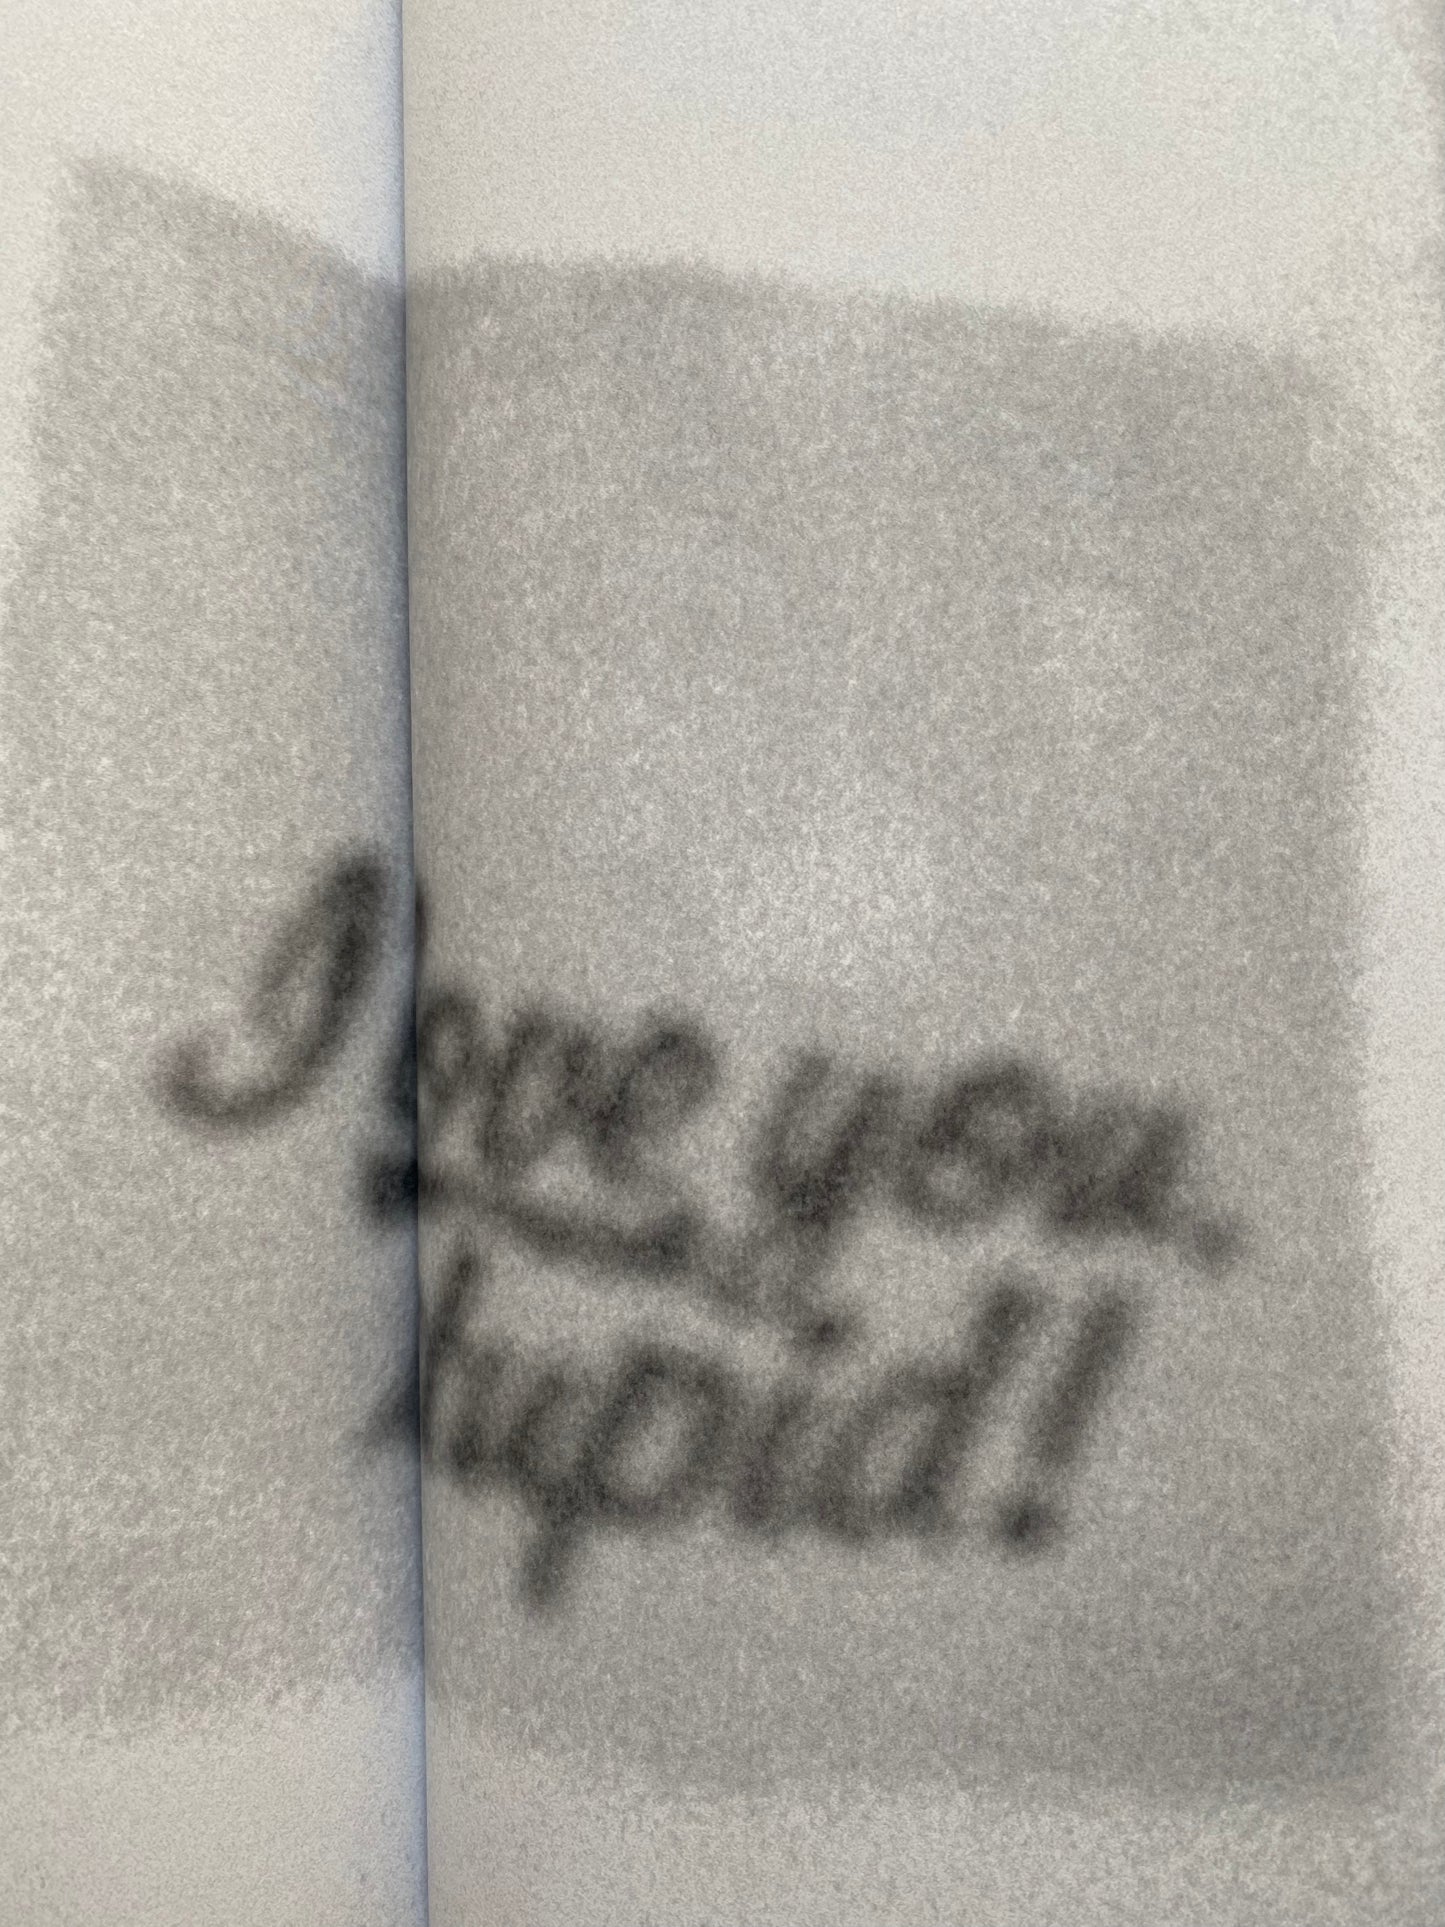 I love you.
stupid!